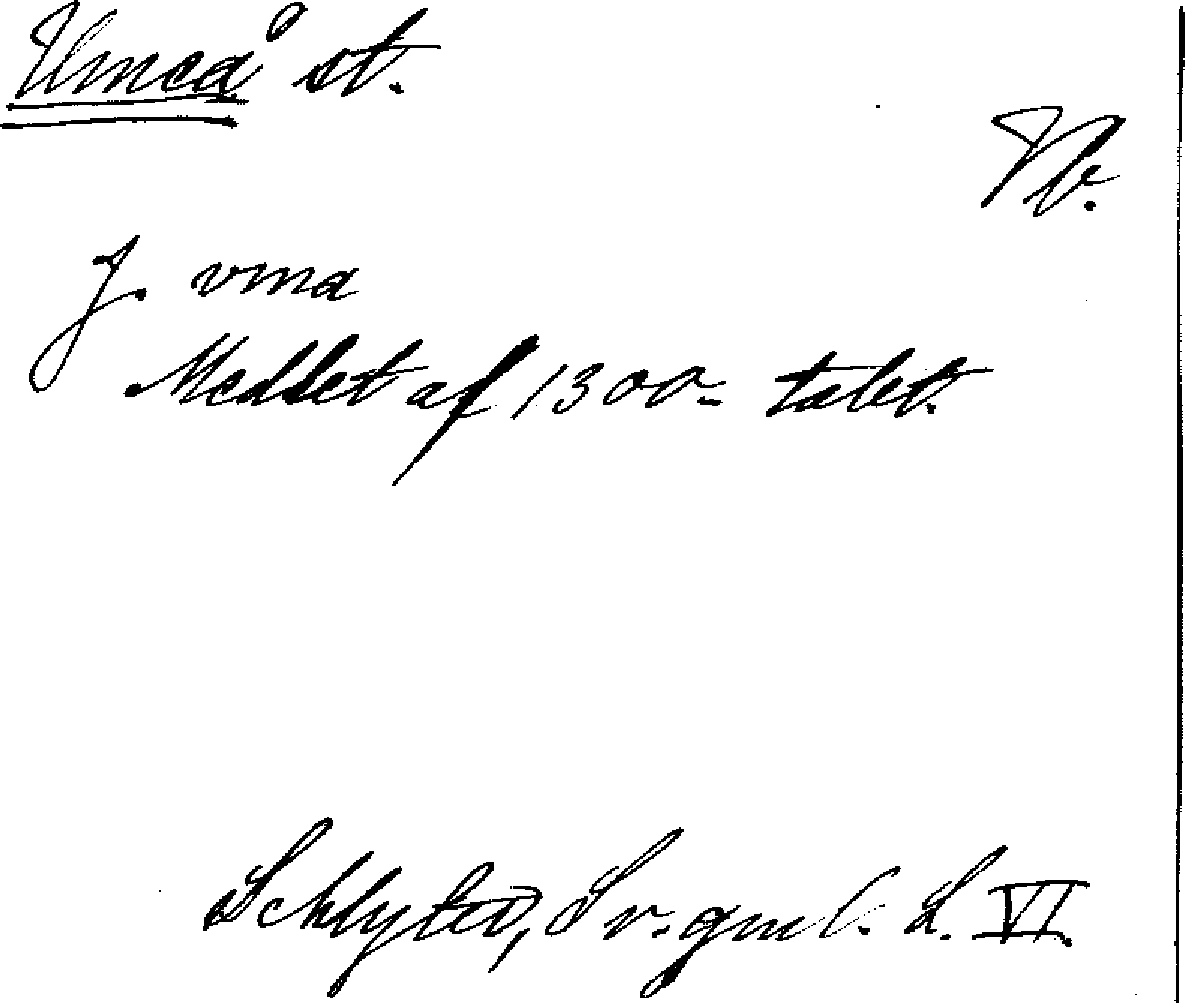 Umeå st.
Vb.
J. vma
Medlet af 1300-talet.
Schlyter, Sv. gml. L. VI.